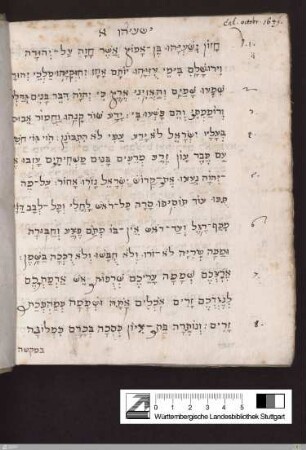 ישעיהו א
Cal. octobr. 1679.
חֲזוֹן יְשַׁעְיָהוּ בֶן־אָמוֹץ אֲשֶׁר חָזָה עַל־יְהוּדָה
וִירוּשָׁלָ͏ִם בִּימֵי עֻזִּיָּהוּ יוֹתָם אָחָז
שִׁמְעוּ שָׁמַיִם וְהַאֲזִינִי אֶרֶץ כִּי יְהוָה דִּבֵּר בָּנִים גִּדַּלְתִּי
וְרוֹמַמְתִּי וְהֵם פָּשְׁעוּ בִי יָדַע שׁוֹר קֹנֵהוּ וַחֲמוֹר אֵבוּס
בְּעָלָיו יִשְׂרָאֵל לֹא יָדַע עַמִּי לֹא הִתְבּוֹנָן הוֹי גּוֹי
עַם כֶּבֶד עָוֹן זֶרַע מְרֵעִים בָּנִים מַשְׁחִיתִים עָזְבוּ אֶת
יְהוָה נִאֲצוּ אֶת־קְדוֹשׁ יִשְׂרָאֵל נָזֹרוּ אָחוֹר עַל־מֶה
תֻכּוּ עוֹד תּוֹסִיפוּ סָרָה כָּל־רֹאשׁ לָחֳלִי וְכָל־לֵבָב
מִכַּף־רֶגֶל וְעַד־רֹאשׁ אֵין־בּוֹ מְתֹם פֶּצַע וְחַבּוּרָה
וּמַכָּה טְרִיָּה לֹא־זֹרוּ וְלֹא חֻבָּשׁוּ וְלֹא רֻכְּכָה בַּשָּׁמֶן
אַרְצְכֶם שְׁמָמָה עָרֵיכֶם שְׂרֻפוֹת אֵשׁ אַדְמַתְכֶם
לְנֶגְדְּכֶם זָרִים אֹכְלִים אֹתָהּ וּשְׁמָמָה כְּמַהְפֵּכַת
זָרִים: וְנוֹתְרָה בַת־צִיּוֹן כְּסֻכָּה בְכָרֶם כִּמְלוּנָה
במקשה
6.
7.
8.
0 1 2 3 4 5
Württembergische Landesbibliothek Stuttgart